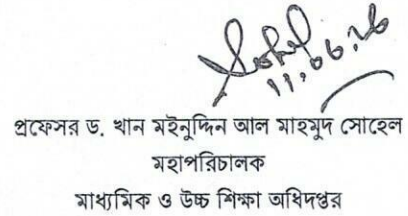 Sohel
11.06.26
প্রফেসর ড. খান মইনুদ্দিন আল মাহমুদ সোহেল
মহাপরিচালক
মাধ্যমিক ও উচ্চ শিক্ষা অধিদপ্তর